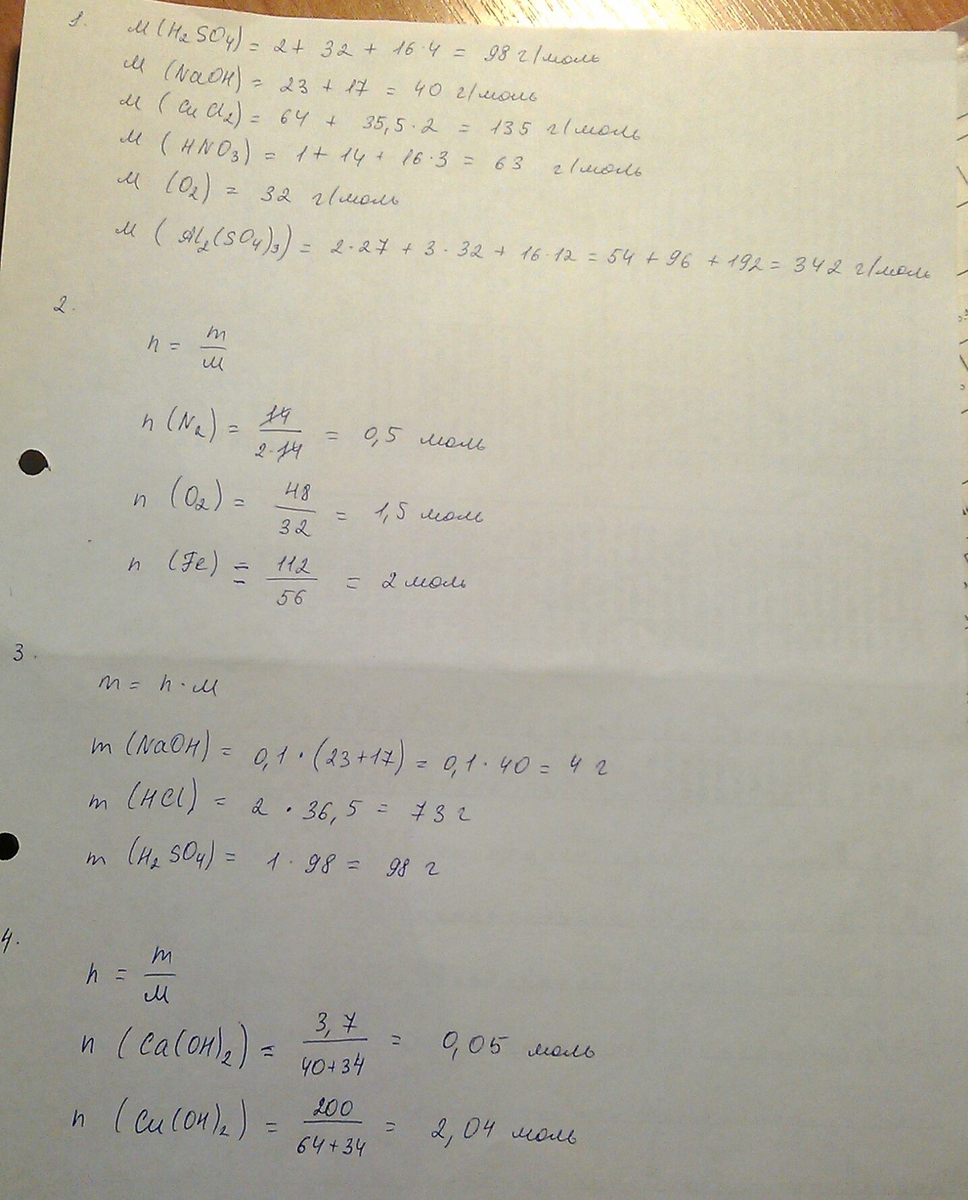 1. M (H₂SO₄) = 2 + 32 + 16·4 = 98 г/моль
M (NaOH) = 23 + 17 = 40 г/моль
M (CuCl₂) = 64 + 35,5·2 = 135 г/моль
M (HNO₃) = 1 + 14 + 16·3 = 63 г/моль
M (O₂) = 32 г/моль
M (Al₂(SO₄)₃) = 2·27 + 3·32 + 16·12 = 54 + 96 + 192 = 342 г/моль
2.
n = m/M
n (N₂) = 14/2·14 = 0,5 моль
n (O₂) = 48/32 = 1,5 моль
n (Fe) = 112/56 = 2 моль
3.
m = n·M
m (NaOH) = 0,1·(23+17) = 0,1·40 = 4 г
m (HCl) = 2·36,5 = 73 г
m (H₂SO₄) = 1·98 = 98 г
4.
n = m/M
n (Ca(OH)₂) = 3,7/40+34 = 0,05 моль
n (Cu(OH)₂) = 200/64+34 = 2,04 моль